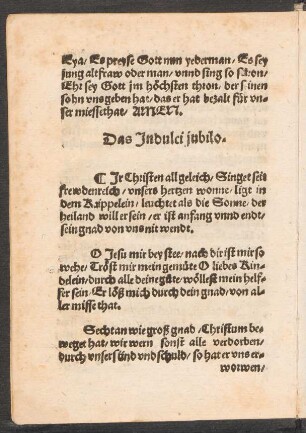 Eya/ Es preyse Gott nun yederman/ Es sey
jung alt fraw oder man/ vnnd sing so schon/
Ehr sey Gott jm höchsten thron/ der seinen
sohn vns geben hat/ das er hat bezalt für vn-
ser missethat/ AMEN.
Das Indulci jubilo.
¶ Ir Christen all geleich/ Singet seit
frewdenreich/ vnsers hertzen wonne/ ligt in
dem Krippelein/ leuchtet als die Sonne/ der
heiland will er sein/ er ist anfang vnnd endt/
sein gnad von vns nit wendt.
O Jesu mir bey stee/ nach dir ist mir so
wehe/ Tröst mir mein gemüte O liebes Kin-
delein/ durch alle deine güte/ wöllest mein helf-
fer sein/ Er löß mich durch dein gnad/ von al-
ler misse that.
Secht an wie groß gnad/ Christum be-
weget hat/ wir wern sonst alle verdorben/
durch vnser sünd vnd schuld/ so hat er vns er-
worwen/